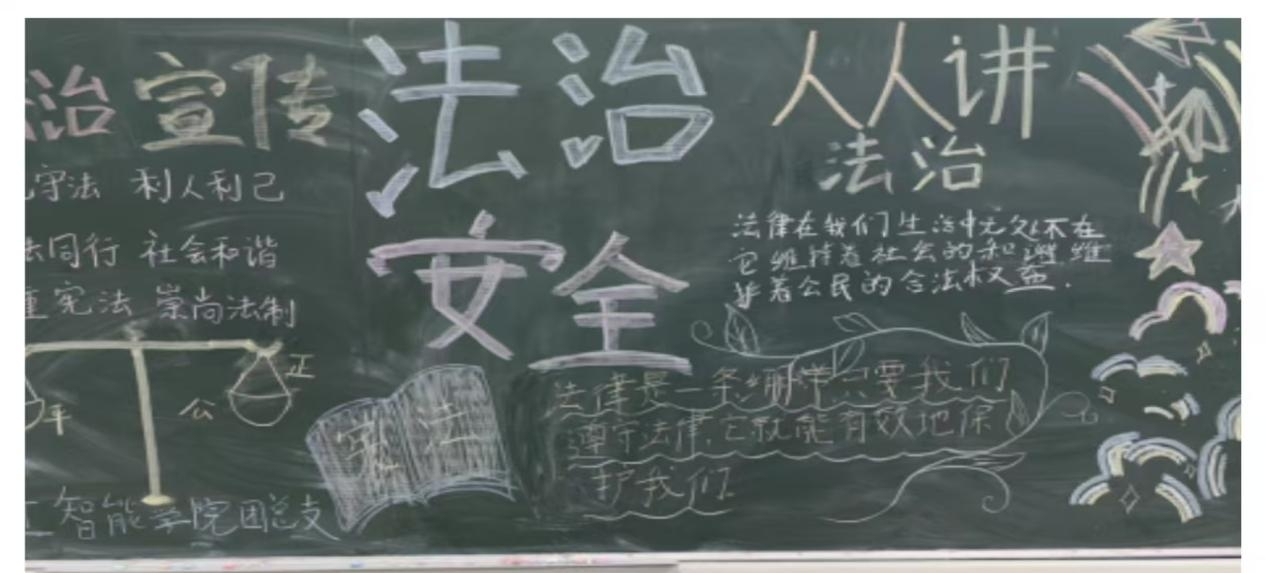 治宣传
守法 利人利己
法同行 社会和谐
重宪法 崇尚法制
正
平
公
智能学院团总支
法治
安全
宪法
人人讲
法治
法律在我们生活中无处不在
它维持着社会的和谐维
护着公民的合法权益.
法律是一条绷带只要我们
遵守法律,它就能有效地保
护我们